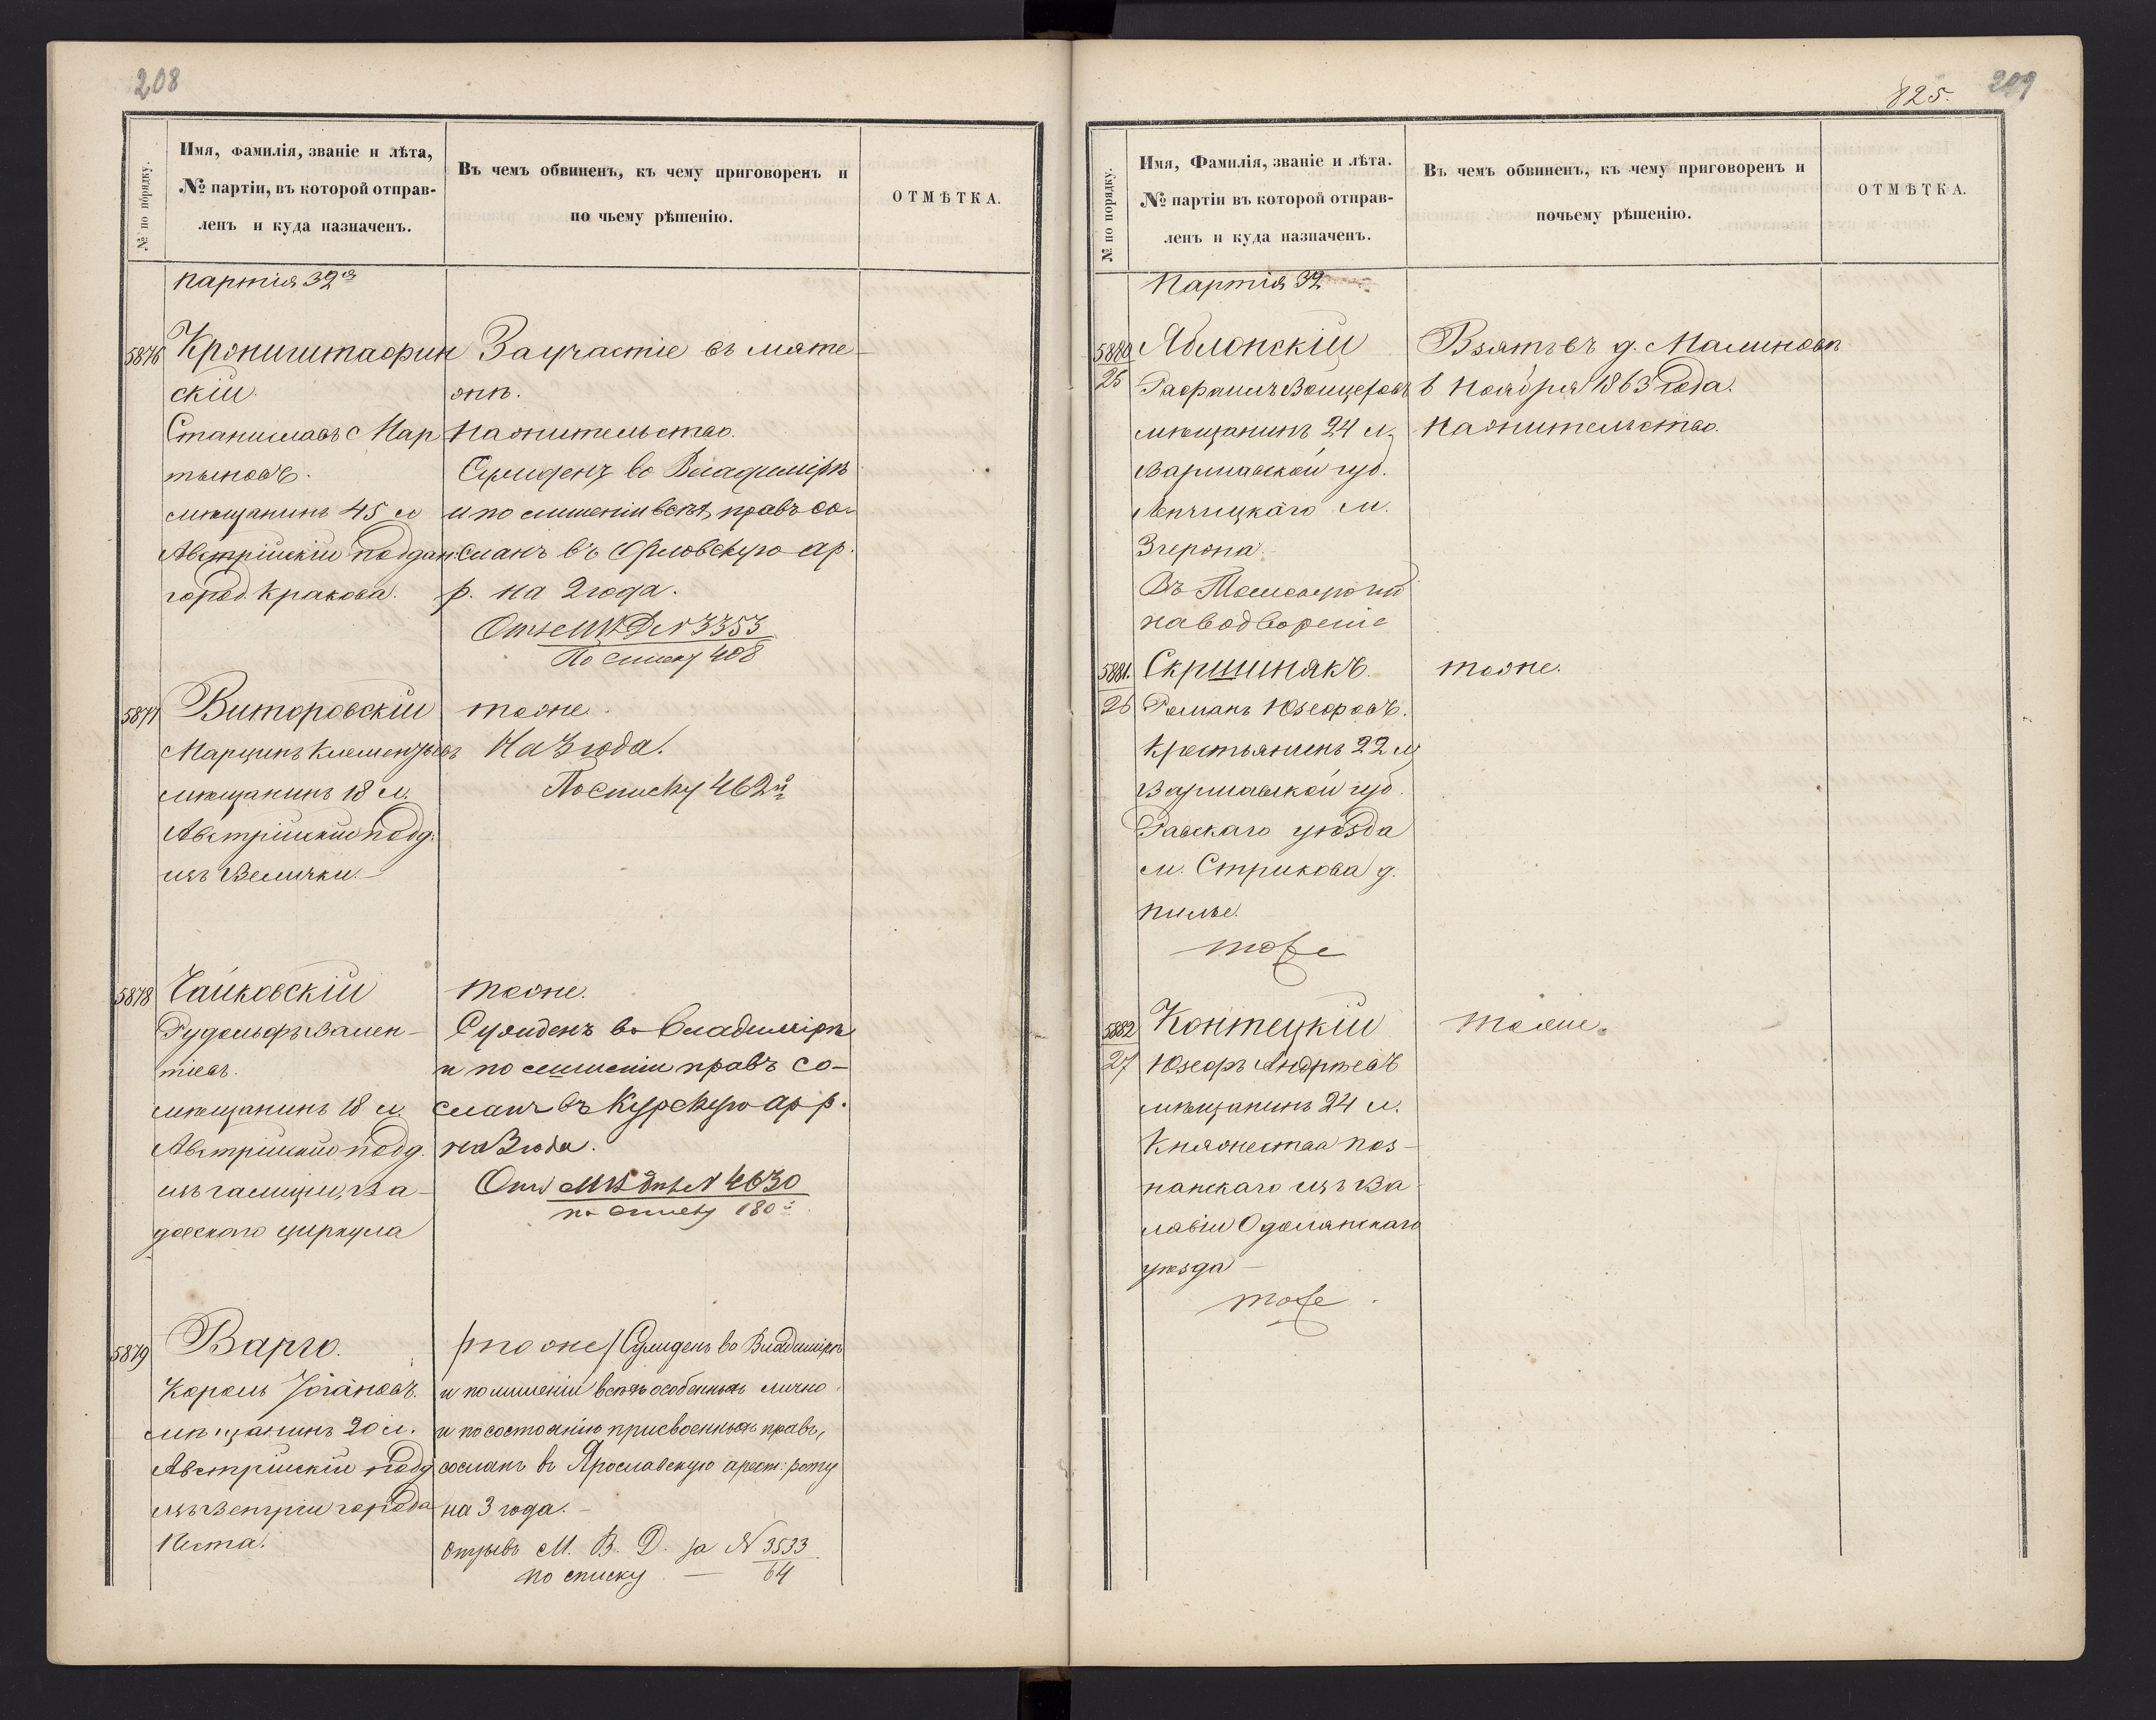 208
№ по порядку.
Имя, фамилія, званіе и лѣта,
№ партіи, въ которой отправ-
ленъ и куда назначенъ.
Въ чемъ обвиненъ, къ чему приговоренъ и
по чьему рѣшенію.
ОТМѢТКА.
партія 32я
5876 Кронштафин
скій.
Станиславъ Мар
тыновъ.
мѣщанинъ 45 л
Австрійскій поддан
город. Кракова.
За участіе въ мяте-
жѣ.
На жительство.
Сужденъ во Владимірѣ
и по лишеніи всѣхъ правъ со-
сланъ въ Орловскую ар.
р. на 2 года.
Отзе МВД № 3353
По списку 408
5877 Виторовскій
Марцинъ Клементьевъ
мѣщанинъ 18 л.
Австрійскій подд.
изъ Велички.
тоже.
На 3 года.
По списку 462й
5878 Чайковскій
Рудольфъ Вален-
тіевъ.
мѣщанинъ 18 л.
Австрійскій подд.
изъ Галиціи, Ва-
довскаго циркула
тоже.
Сужденъ во Владимірѣ
и по лишеніи правъ со-
сланъ въ Курскую ар р.
на 3 года.
МВД № 4630
по списку 180й
5879 Варго.
Кароль Іогановъ.
мѣщанинъ 20 л.
Австрійскій подд
изъ Венгріи города
Песта.
/тоже/ Сужденъ во Владимірѣ
и по лишеніи всѣхъ особенныхъ лично
и по состоянію присвоенныхъ правъ,
сосланъ въ Ярославскую арест: роту
на 3 года. -
отзывъ М. В. Д. за № 3533
по списку - 64
825. 209
№ по порядку.
Имя, Фамилія, званіе и лѣта.
№ партіи въ которой отправ-
ленъ и куда назначенъ.
Въ чемъ обвиненъ, къ чему приговоренъ и
почьему рѣшенію.
ОТМѢТКА.
Партія 32
5880 Яблонскій
25 Рафаилъ Войцеховъ
мѣщанинъ 24 л.
Варшавской губ.
Ленчицкаго м.
Згержа.
Въ Томскую губ
на водвореніе
Взятъ въ д. Малиновѣ
в Ноября 1863 года.
На жительство.
5881. Скршинякъ.
26 Романъ Юзефовъ.
крестьянинъ 22 л
Варшавской губ.
Равскаго уѣзда
м. Стрикова д.
Пилье.
тоже
тоже.
5882 Контецкій
27 Юзефъ Андреевъ
мѣщанинъ 24 л.
Княжества Поз-
нанскаго изъ Ва
лавіи Одолянскаго
уѣзда -
тоже.
тоже.